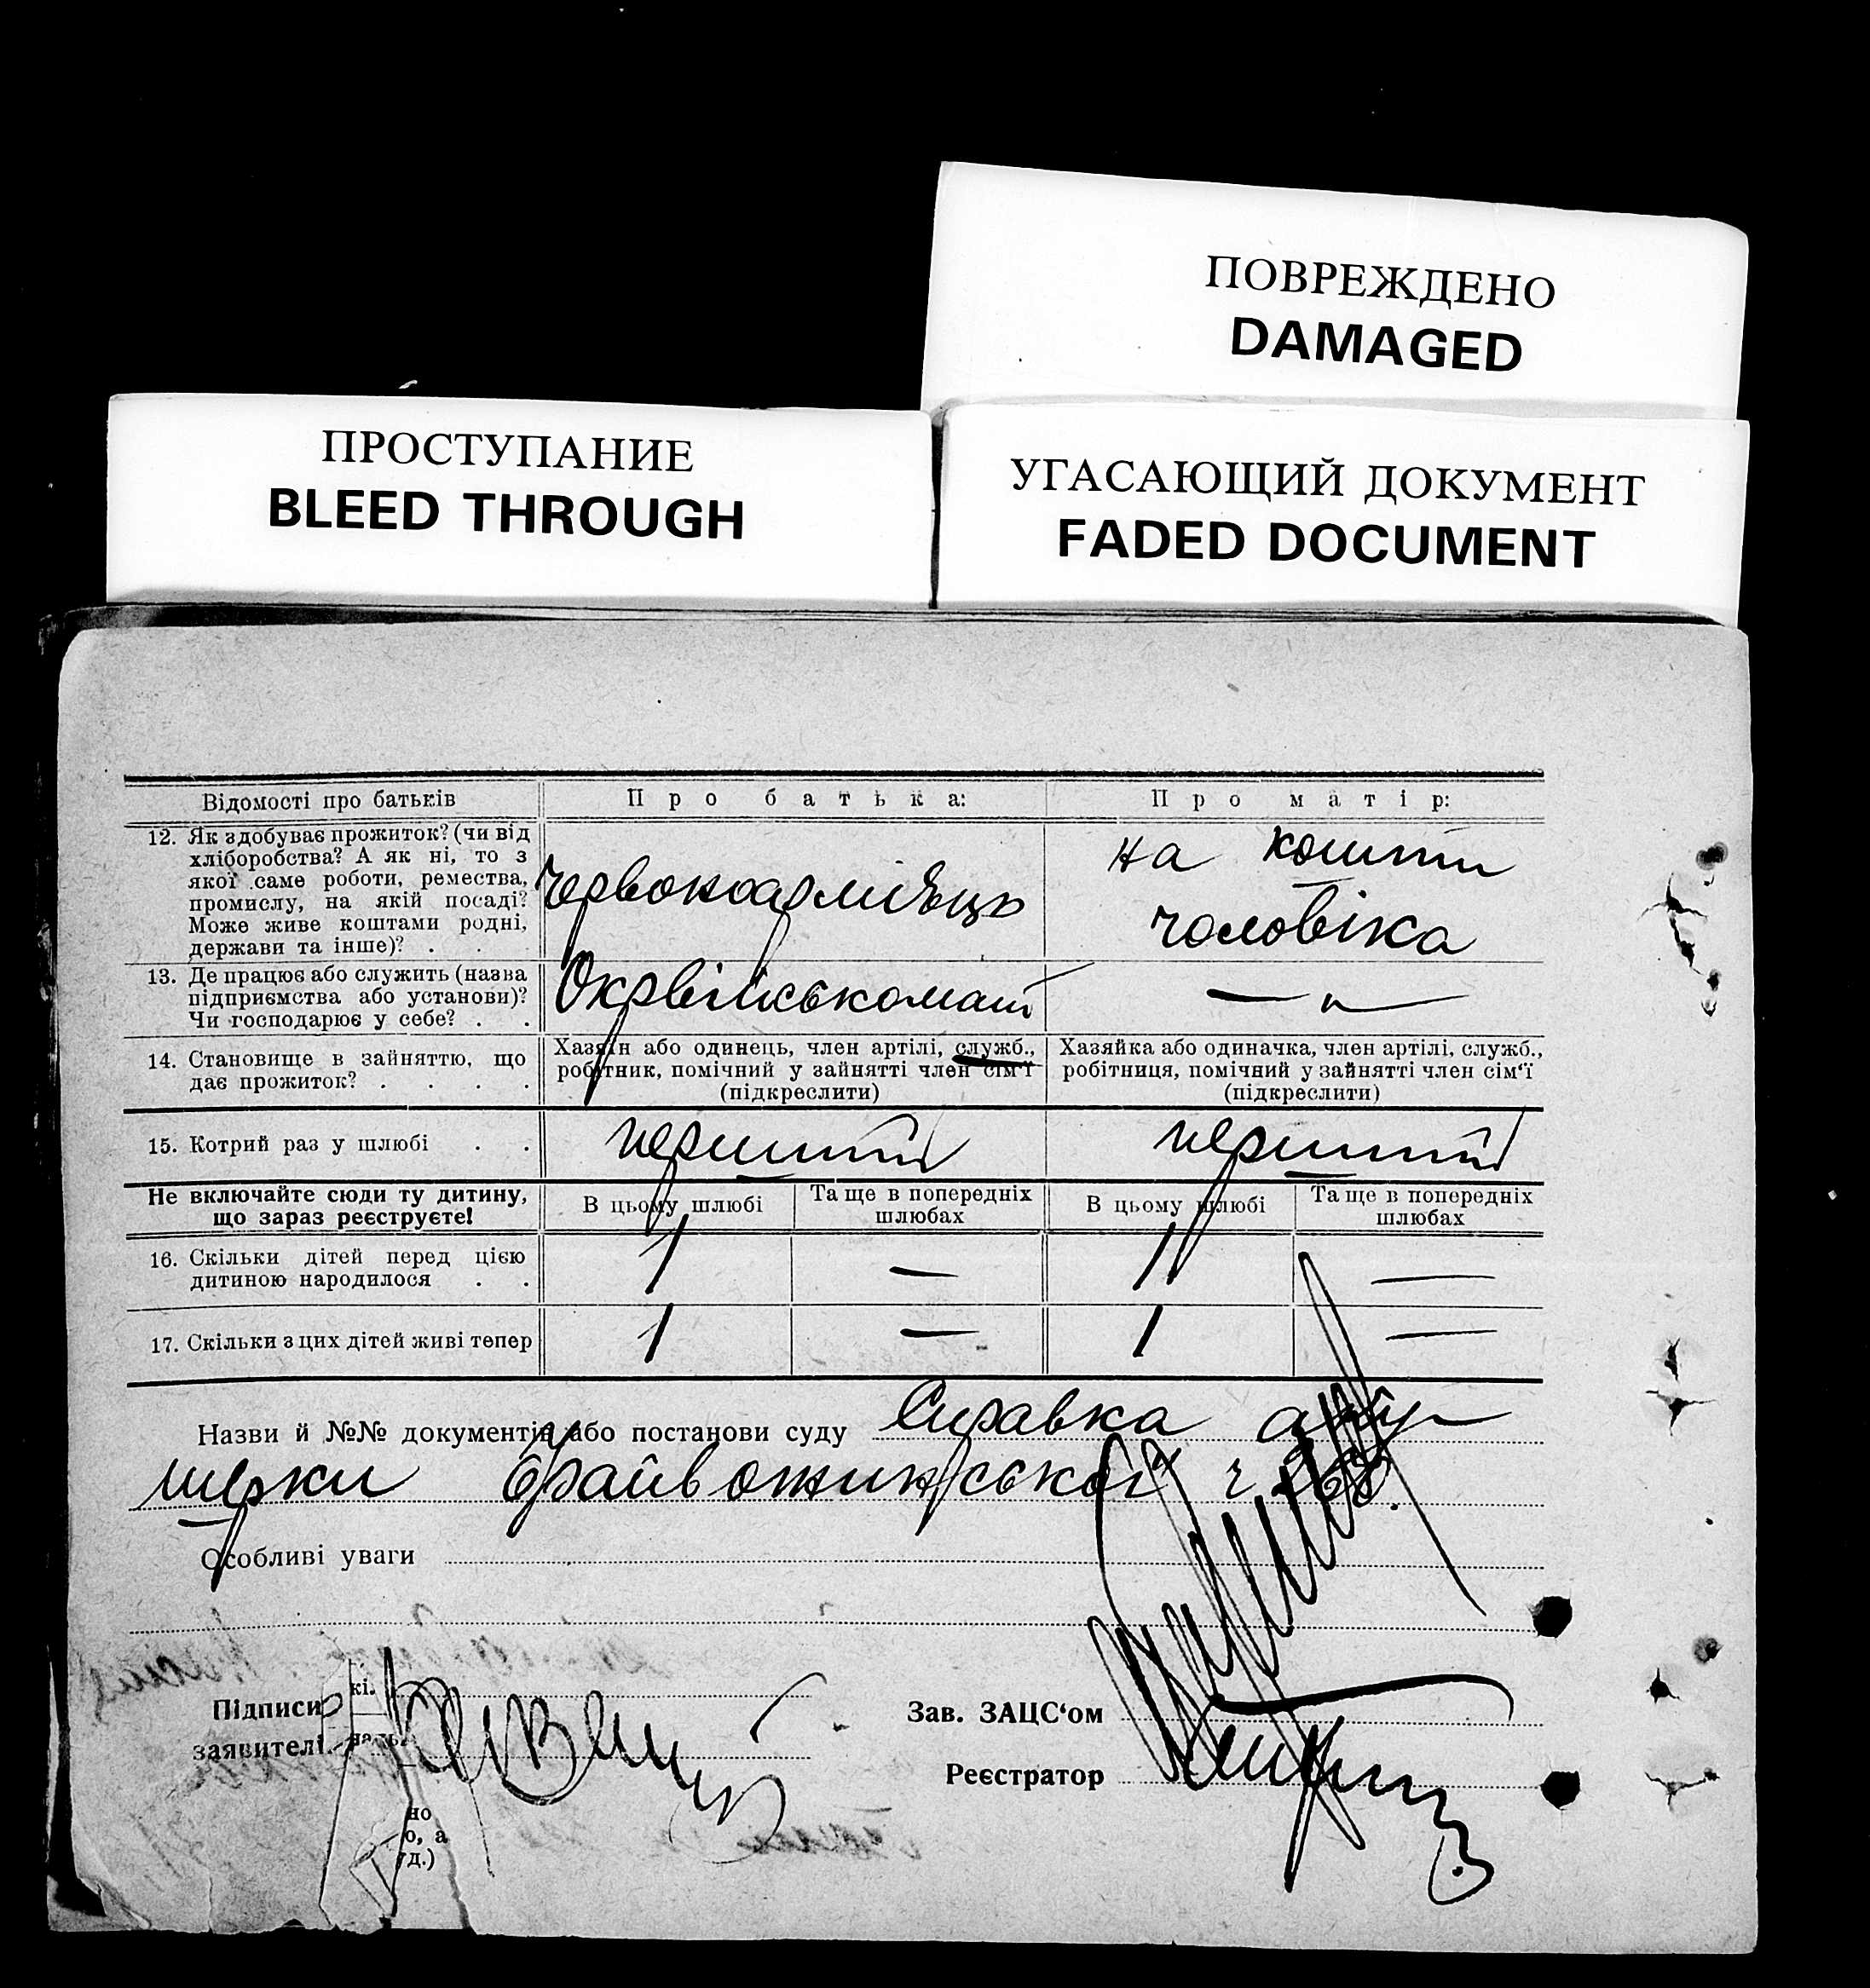 ПОВРЕЖДЕНО
DAMAGED
ПРОСТУПАНИЕ
BLEED THROUGH
УГАСАЮЩИЙ ДОКУМЕНТ
FADED DOCUMENT
Відомості про батьків
Про батька:
Про матір:
12. Як здобуває прожиток? (чи від
хліборобства? А як ні, то з
якої саме роботи, ремества,
промислу, на якій посаді?
Може живе коштами родні,
держави та інше)? .
Червоноармієць
на кошти
чоловіка
13. Де працює або служить (назва
підприємства або установи)?
Чи господарює у себе? . .
Окрвійськомат
— „ —
14. Становище в зайняттю, що
дає прожиток? . . . .
Хазяїн або одинець, член артілі, служб.,
робітник, помічний у зайнятті член сім'ї
(підкреслити)
Хазяйка або одиначка, член артілі, служб.,
робітниця, помічний у зайнятті член сім'ї
(підкреслити)
15. Котрий раз у шлюбі . .
перший
перший
Не включайте сюди ту дитину,
що зараз реєструєте!
В цьому шлюбі
Та ще в попередніх
шлюбах
В цьому шлюбі
Та ще в попередніх
шлюбах
16. Скільки дітей перед цією
дитиною народилося . .
1 — 1 —
17. Скільки з цих дітей живі тепер
1 — 1 —
Назви й №№ документів або постанови суду Справка аку
шерки ч
Особливі уваги
Підписи
заявителі
кі.
но
о, а
уд.)
Зав. ЗАЦС'ом
Реєстратор